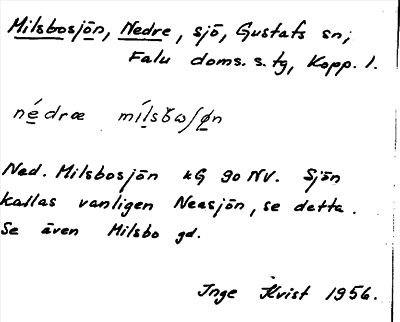 Milsbosjön, Nedre, sjö, Gustafs sn;
Falu doms. s. tg, Kopp. l.
nédræ mílsbωʃøn
Ned. Milsbosjön kG 90 NV. Sjön
kallas vanligen Neasjön, se detta.
Se även Milsbo gd.
Inge Kvist 1956.